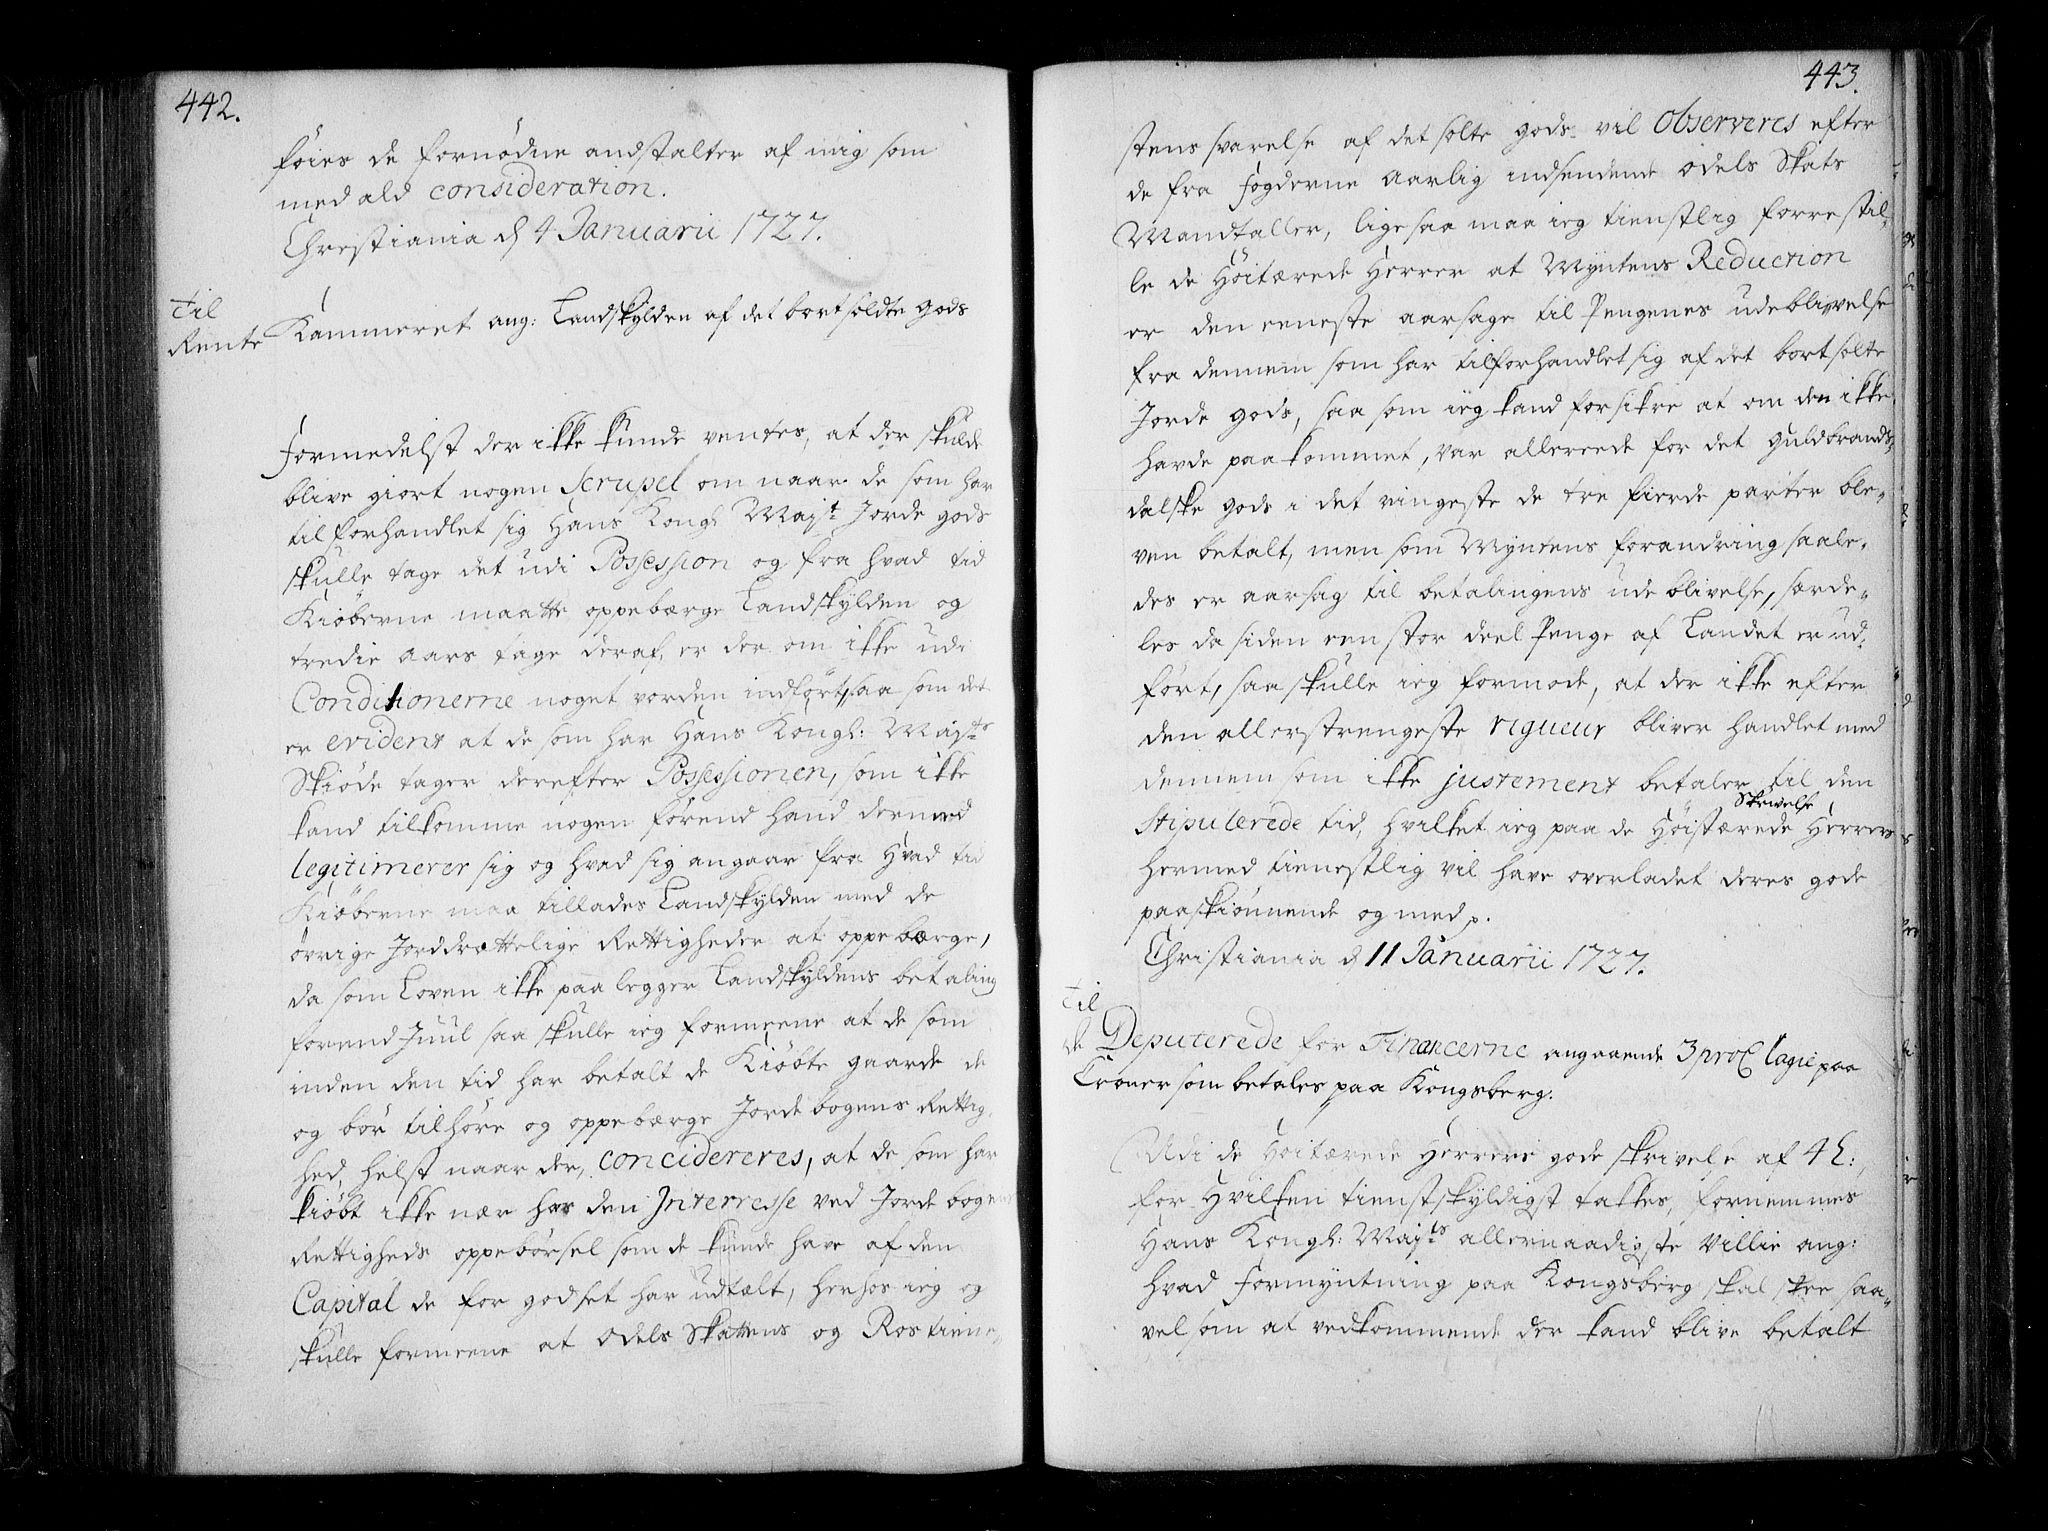 442.
föies de fornödne andstalter af mig som
med ald consideration.
Christiania d 4 Januarii 1727.
Til
Rente Kammeret ang: Landskÿlden af det bortsoldte gods
Formedelst der ikke kunde ventes, at der skulde
blive giort nogen Scrupel om naar de som har
tilforhandlet sig Hans Kongl Majt Jorde gods
skulle tage det udi Possession og fra hvad tid
Kiöberne maatte oppebærge Landskÿlden og
tredie Aars tage deraf, er der om ikke udi
Conditionerne noget vorden indfört, saa som det
er evident at de som har Hans Kongl: Majts
Skiöde tager derefter Possessionen, som ikke
kand tilkomme nogen förend hand dermed
legitimerer sig og hvad sig angaar fra Hvad tid
Kiöberne maa tillades Landskÿlden med de
övrige Jorddrottelige Rettigheder at oppebærge,
da som Loven ikke paalegger Landskÿldens betaling
forend Juul saa skulle ieg formeene at de som
inden den tid har betalt de Kiöbte gaarde de
og bör tilhöre og oppebærge Jordebogens Rettig,
hed, helst naar der, concidereres, at de som har
kiöbt ikke nær har den Interresse ved Jorde bogens
Rettigheds oppebörsel som de kunde have af den
Capital de for godset har udtælt, herhos ieg og
skulle formeene at Odels Skattens og Rostiene,,
443.
stens svarelse af det solte gods vil Observeres efter
de fra Fogderne Aarlig indsendende Odels Skats
Mandtaller, ligesaa maa ieg tienstlig forrestil,,
le de Höitærede Herrer at Myntens Reduction
er den eeneste aarsage til Pengenes udeblivelse
fra dennem som har tilforhandlet sig af det bortsolte
Jorde gods, saa som ieg kand forsikre at om den ikke
havde paakommet, var allereede for det Guldbrands,,
dalske gods i det ringeste de tre fierde parter ble,,
ven betalt, men som Myntens forandring saale,,
des er aarsag til betalingens udeblivelse, særde,,
les da siden een stor deel Penge af Landet er ud,
fört, saa skulle ieg formode, at der ikke efter
den allerstrengeste rigueur bliver handlet med
dennem som ikke justement betaler til den
Stipulerede tid, hvilket ieg paa de Höistærede Herrers
hermed tienestlig vil have overladet deres gode
paaskiönnende og med p.
Christiania d 11 Januarii 1727.
Til
de Deputerede for Financerne angaaende 3 proC lagie paa
Croner som betales paa Kongsberg.
Udi de Höitærede Herrers gode skrivelse af 4 h:,
for Hvilken tienstskÿldigst takkes, fornemmes
Hans Kongl: Majts allernaadigste Villie ang:
hvad Formyntning paa Kongsberg skal skee saa,,
vel som at vedkommende der kand blive betalt